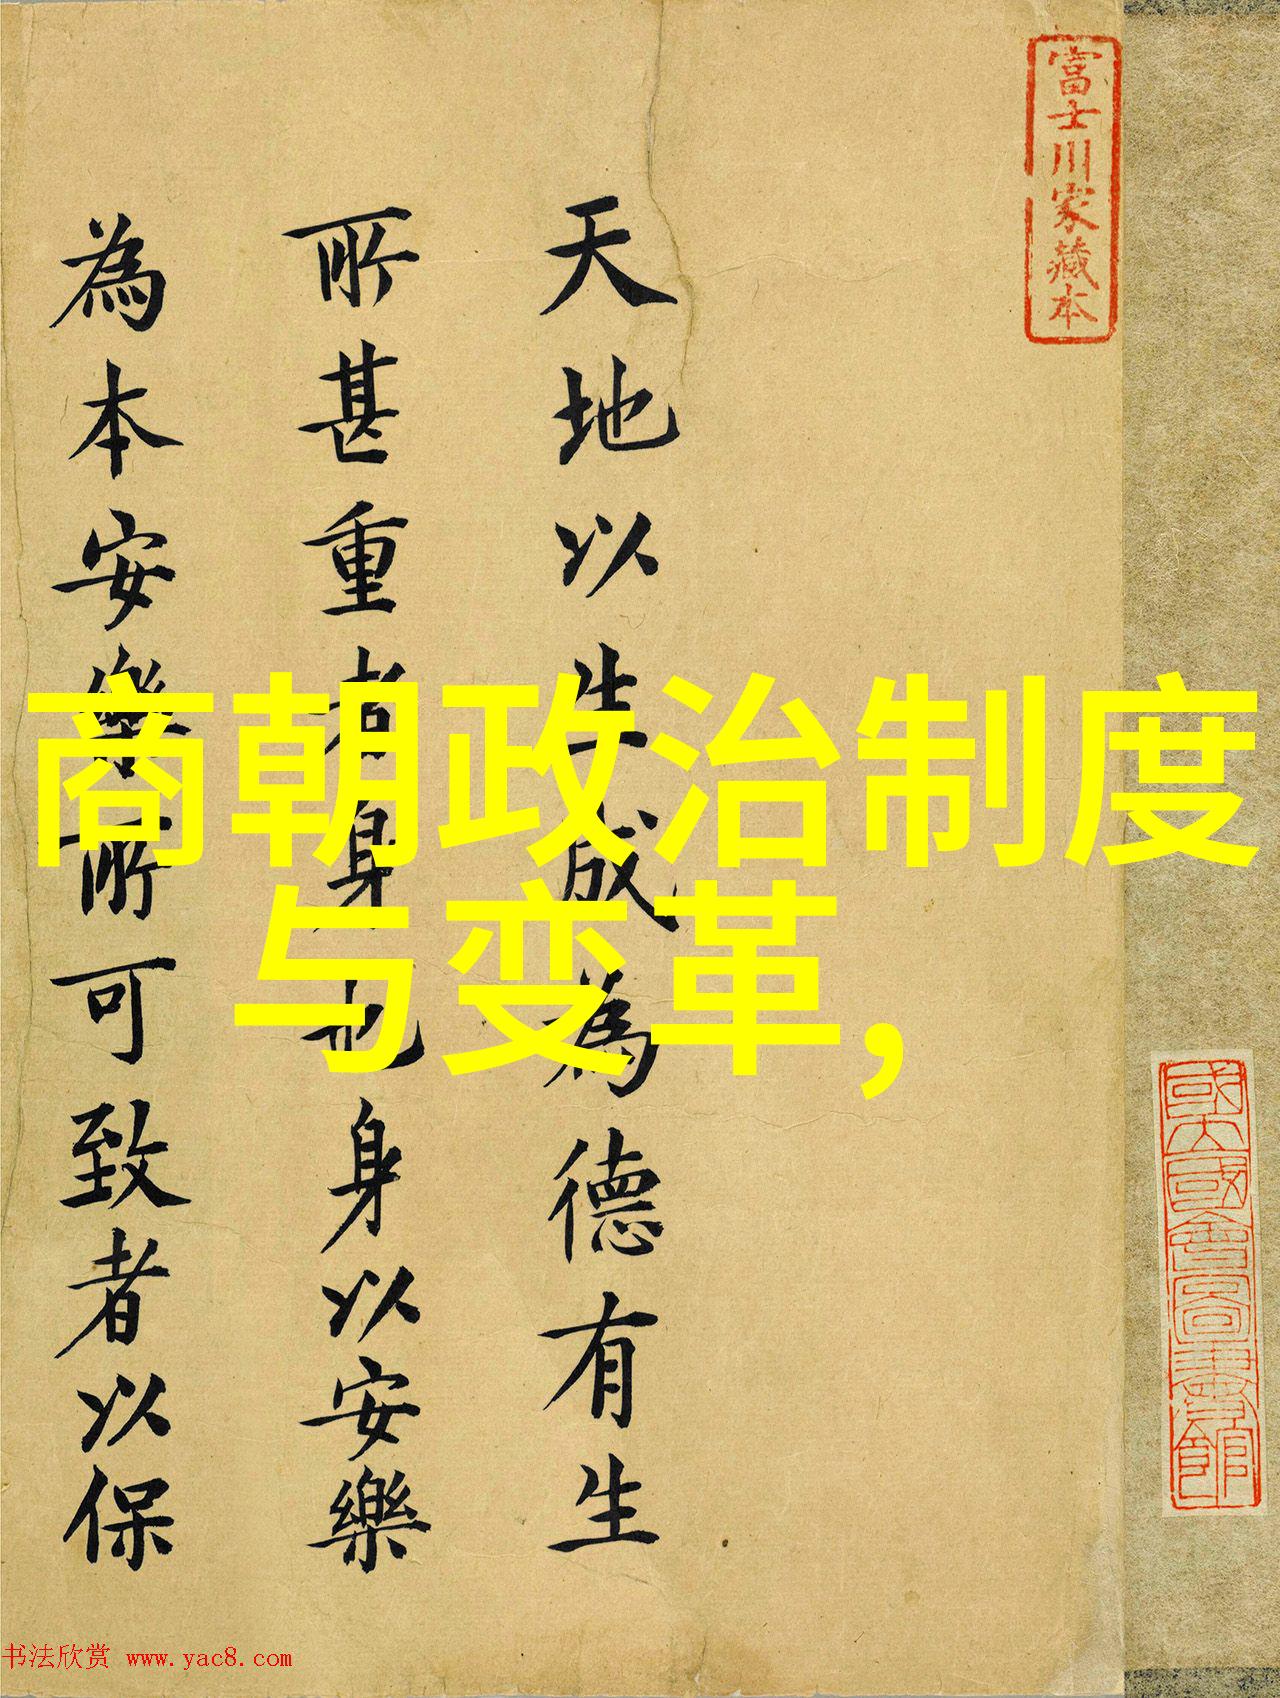 富士川家藏本
天地以生成為德有生
所甚重者身也身以安樂
為本安樂所可致者以保
商朝政治制度
与变革,
國立國會圖書館
书法欣赏 www.yac8.com